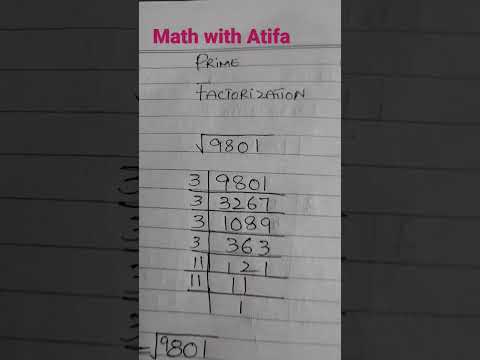 Math with Atifa
PRIME
FACTORIZATION
√9801
3 | 9801
3 | 3267
3 | 1089
3 | 363
11 | 121
11 | 11
1
=√9801